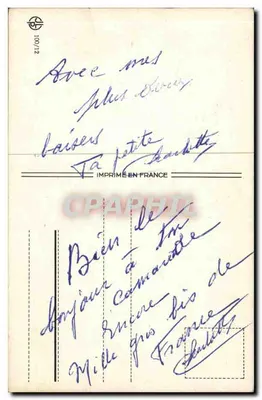 100/12
Avec mes
plus doux
baisers
Ta petite Charlotte
IMPRIMÉ EN FRANCE
CPARAMA
Bien le
bonjour à ton
camarade
Encore
Mille gros bis de
France